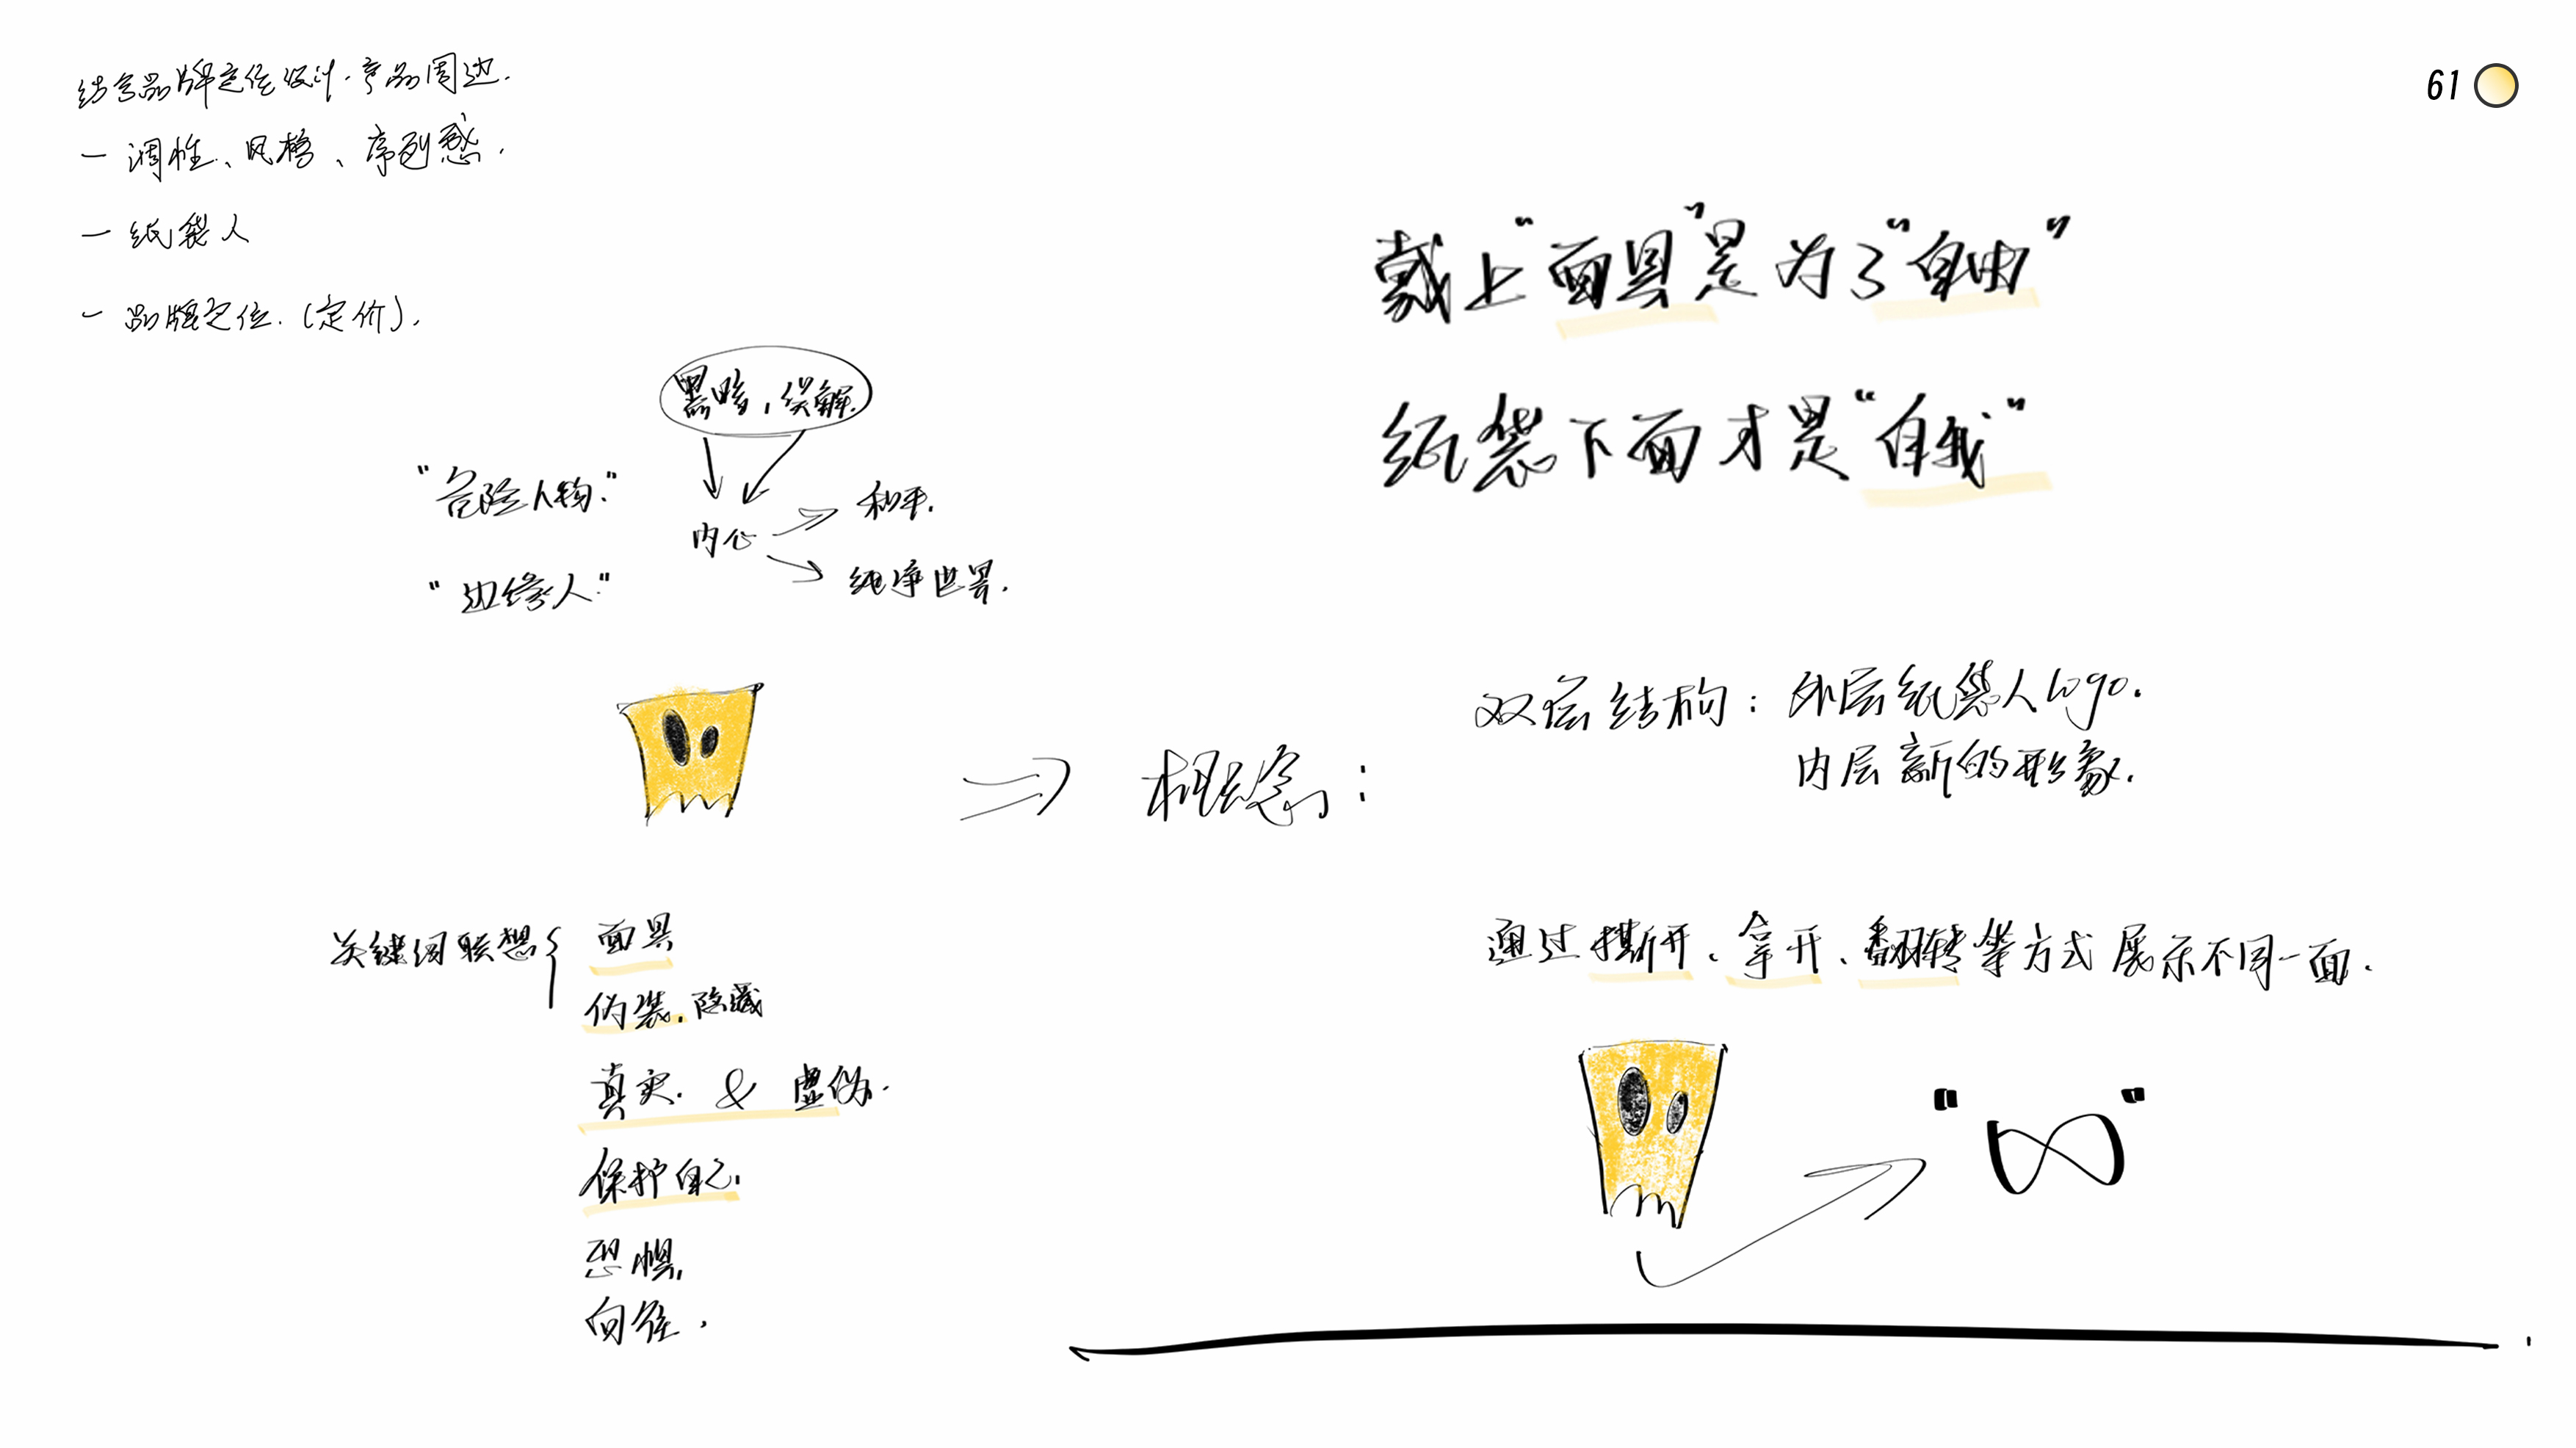 结合品牌定位设计.产品周边.
一 调性、风格、序列感.
一 纸袋人
一 品牌定位.(定价).
61
戴上“面具”是为了“自由”
纸袋下面才是“自我”
黑暗,误解.
“危险人物.”
内心
和平.
“边缘人.”
纯净世界.
概念:
双层结构: 外层纸袋人logo.
内层新的形象.
关键词联想{
面具
伪装.隐藏
真实. & 虚伪.
保护自己.
恐惧,
向往.
通过撕开、拿开、翻转等方式展示不同一面.
“∞”